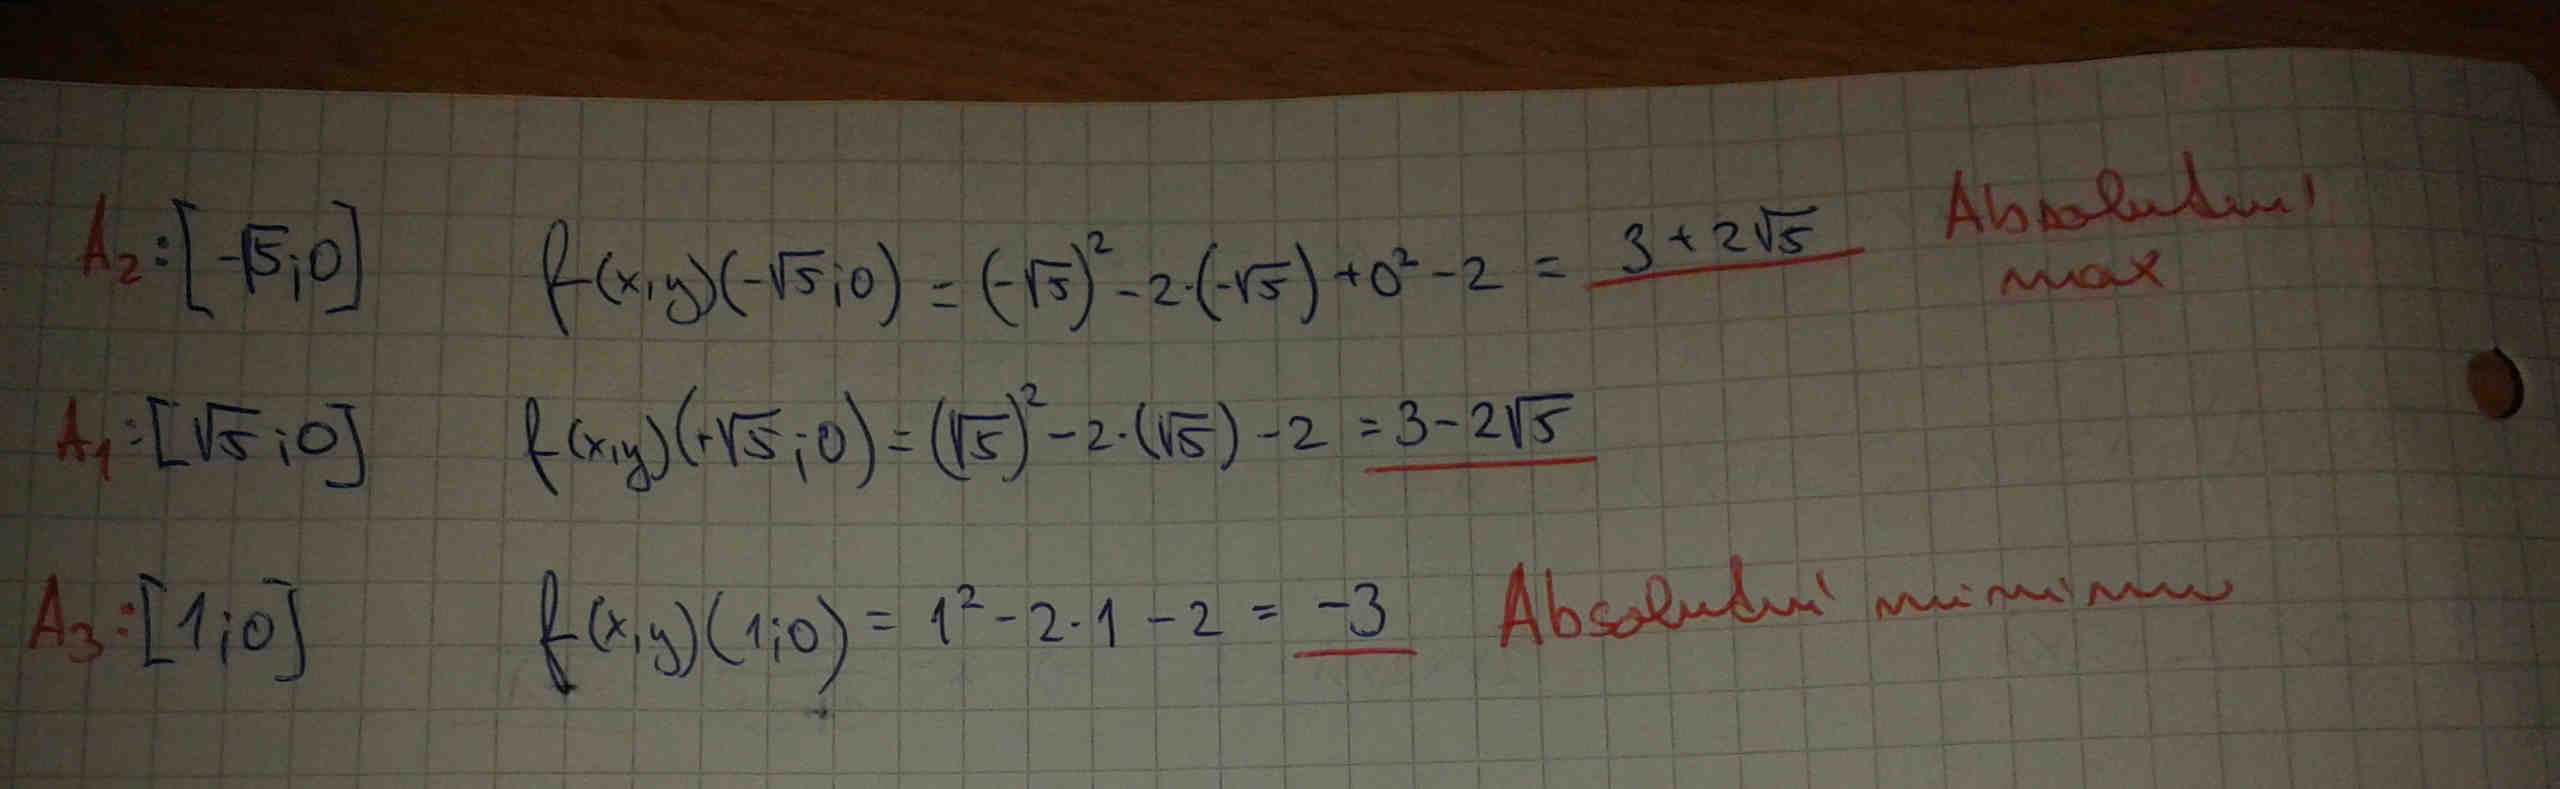 A₂: [-√5;0] f(x,y)(-√5;0) = (-√5)² - 2·(-√5) + 0² - 2 = 3 + 2√5 Absolutní
max
A₁: [√5;0] f(x,y)(+√5;0) = (√5)² - 2·(√5) - 2 = 3 - 2√5
A₃: [1;0] f(x,y)(1;0) = 1² - 2·1 - 2 = -3 Absolutní minimum